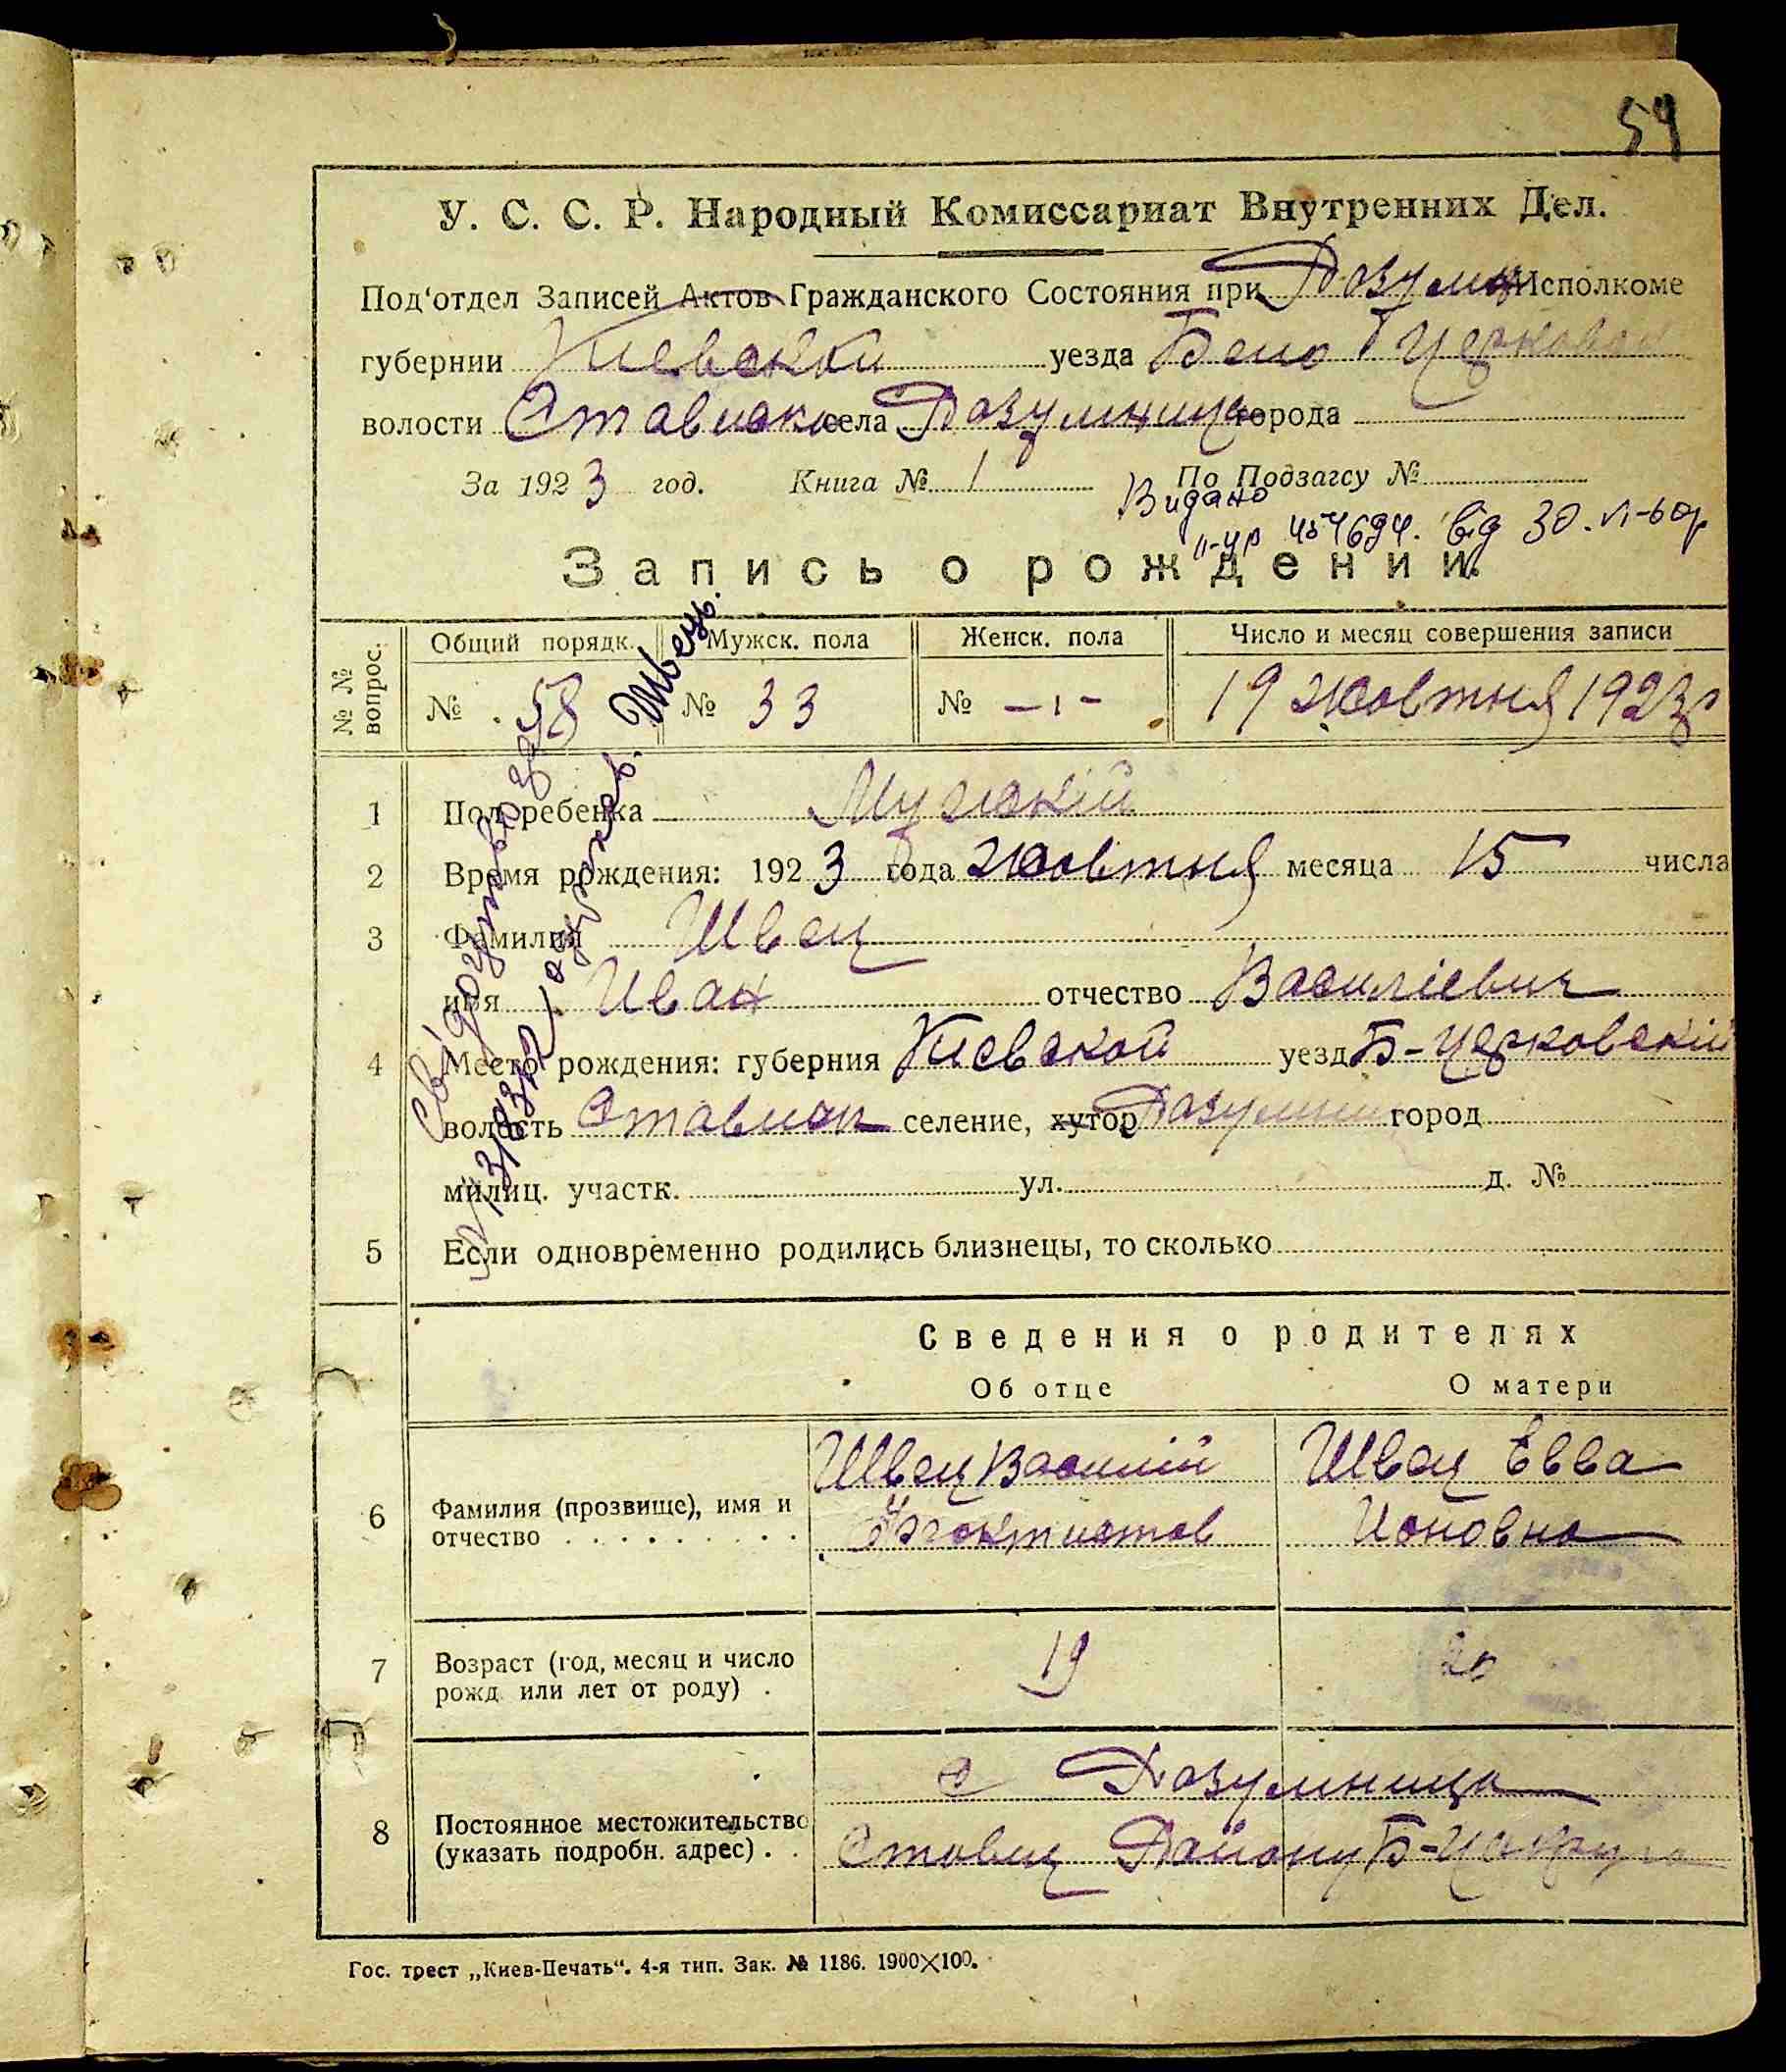 59
У. С. С. Р. Народный Комиссариат Внутренних Дел.
Под'отдел Записей Актов Гражданского Состояния при Розумн Исполкоме
губернии Киевской уезда Бело Церковск
волости Стависк села Розумница города
За 1923 год. Книга № 1 По Подзагсу №
Видано
від 30.
Запись о рождении.
№ № вопрос. Общий порядк. Мужск. пола Женск. пола Число и месяц совершения записи
№ 58 № 33 № -ı- 19 жовтня 1923 р
1 Пол ребенка Мужскій
2 Время рождения: 1923 года жовтня месяца 15 числа
3 Фамилия Швец
имя Иван отчество Василіевич
4 Место рождения: губерния Киевской уезд Б-Церковскій
волость Стависк селение, хутор Розумни город
милиц. участк. ул. д. №
5 Если одновременно родились близнецы, то сколько
Свідоцтво
Швець.
Сведения о родителях
Об отце О матери
Швец Василій Швец Евва
6 Фамилия (прозвище), имя и отчество Феоктистов Ионовна
7 Возраст (год, месяц и число рожд. или лет от роду) 19 20
с Розумница
8 Постоянное местожительство (указать подробн. адрес) Ставищ Району Б-Ц округа
Гос. трест „Киев-Печать“. 4-я тип. Зак. № 1186. 1900×100.